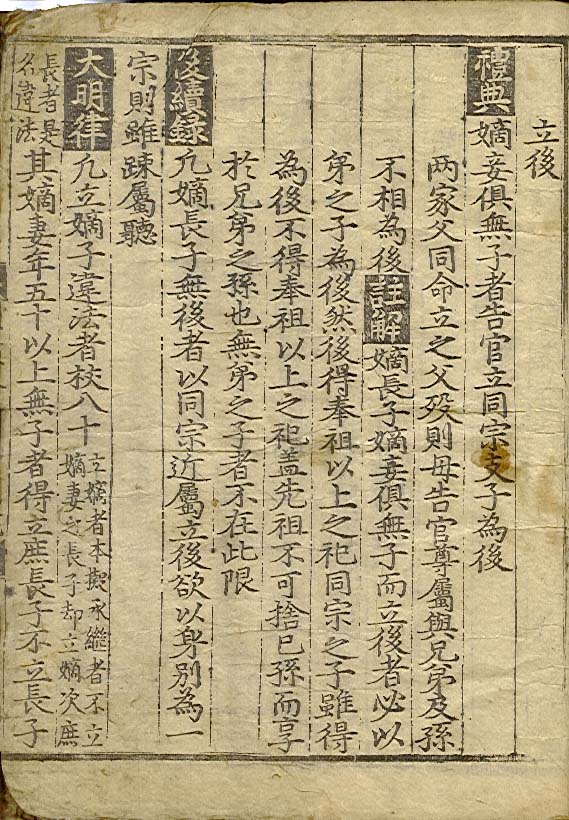 立後
禮典嫡妾俱無子者告官立同宗支子為後
两家父同命立之父殁則母告官尊屬與兄弟及孫
不相為後註解嫡長子嫡妾俱無子而立後者必以
弟之子為後然後得奉祖以上之祀同宗之子雖得
為後不得奉祖以上之祀盖先祖不可捨已孫而享
於兄弟之孫也無弟之子者不在此限
後續錄凡嫡長子無後者以同宗近屬立後欲以身別為一
宗則雖踈屬聽
大明律凡立嫡子違法者杖八十立嫡者本擬承繼者不立
嫡妻之長子却立嫡次庶
長者是
名違法其嫡妻年五十以上無子者得立庶長子不立長子